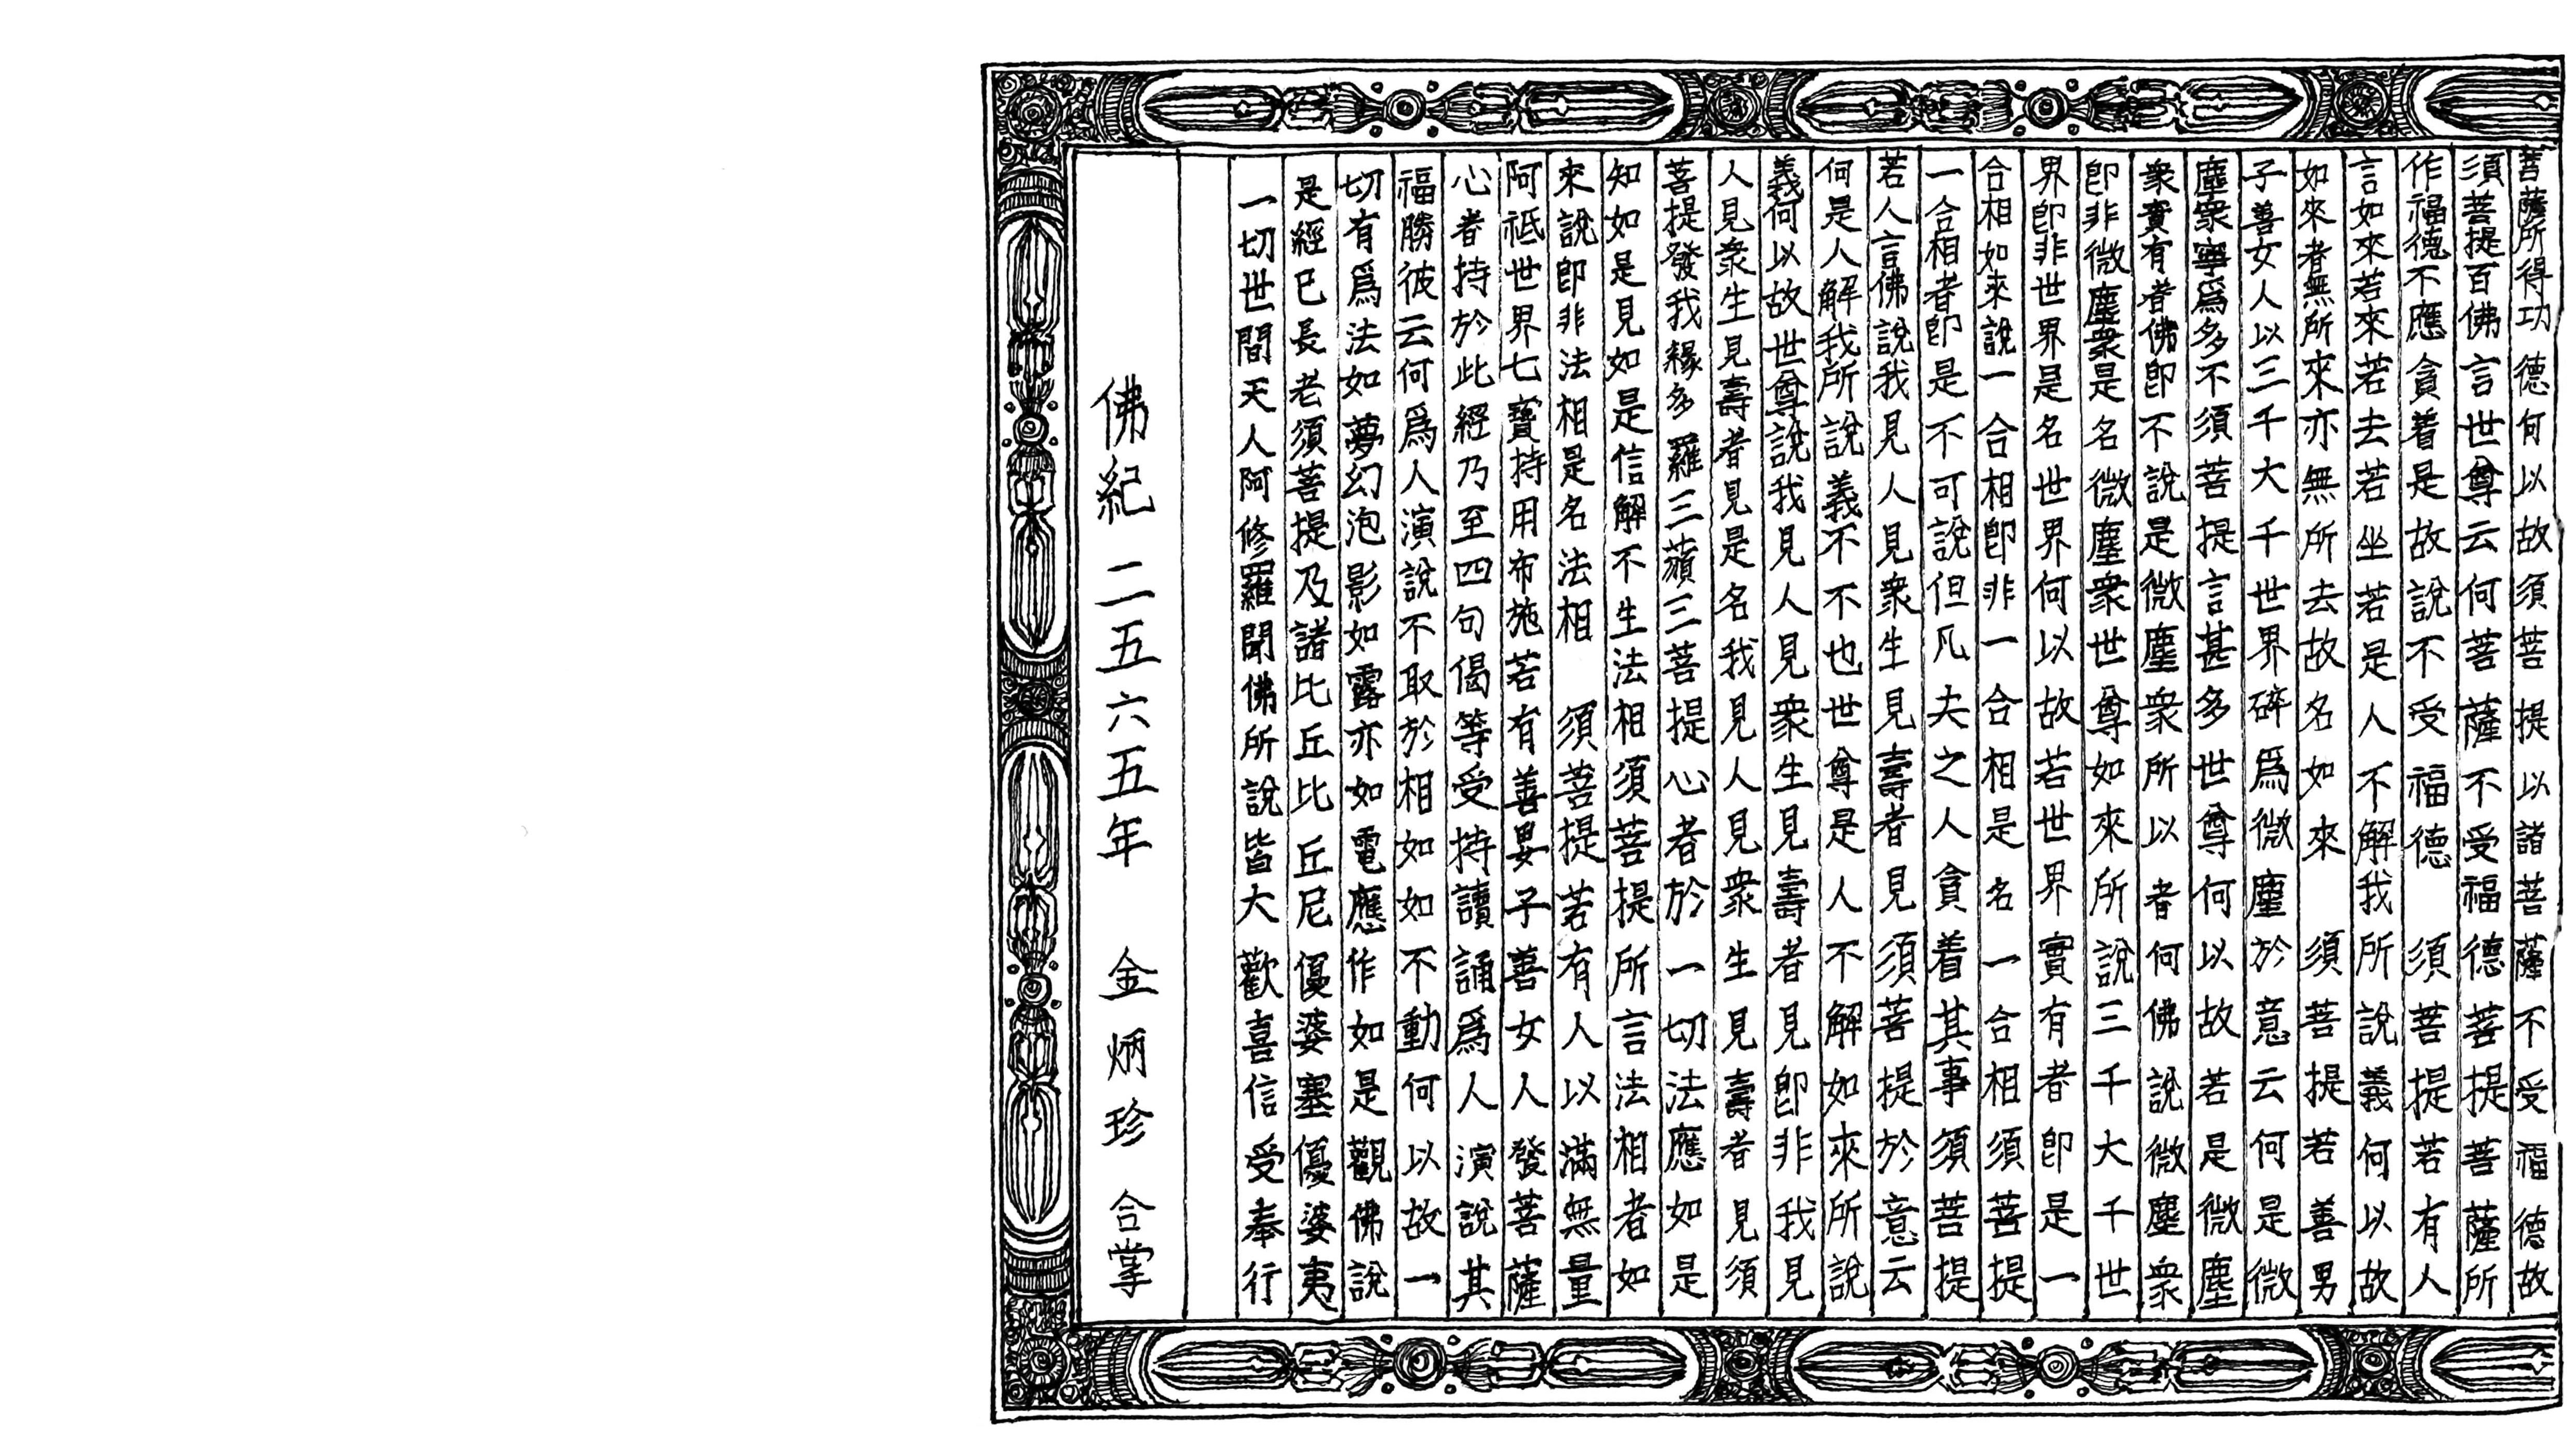 菩薩所得功德何以故須菩提以諸菩薩不受福德故
須菩提百佛言世尊云何菩薩不受福德菩提菩薩所
作福德不應貪着是故說不受福德 須菩提若有人
言如來若來若去若坐若是人不解我所說義何以故
如來者無所來亦無所去故名如來 須菩提若善男
子善女人以三千大千世界碎爲微塵於意云何是微
塵衆寧爲多不須菩提言甚多世尊何以故若是微塵
衆實有者佛卽不說是微塵衆所以者何佛說微塵衆
卽非微塵衆是名微塵衆世尊如來所說三千大千世
界卽非世界是名世界何以故若世界實有者卽是一
合相如來說一合相卽非一合相是名一合相須菩提
一合相者卽是不可說但凡夫之人貪着其事須菩提
若人言佛說我見人見衆生見壽者見須菩提於意云
何是人解我所說義不不也世尊是人不解如來所說
義何以故世尊說我見人見衆生見壽者見卽非我見
人見衆生見壽者見是名我見人見衆生見壽者見須
菩提發我緣多羅三藐三菩提心者於一切法應如是
知如是見如是信解不生法相須菩提所言法相者如
來說卽非法相是名法相 須菩提若有人以滿無量
阿祗世界七寶持用布施若有善男子善女人發菩薩
心者持於此經乃至四句偈等受持讀誦爲人演說其
福勝彼云何爲人演說不取於相如如不動何以故一
切有爲法如夢幻泡影如露亦如電應作如是觀佛說
是經已長老須菩提及諸比丘比丘尼優婆塞優婆夷
一切世間天人阿修羅聞佛所說皆大歡喜信受奉行
佛紀二五六五年 金炳珍 合掌